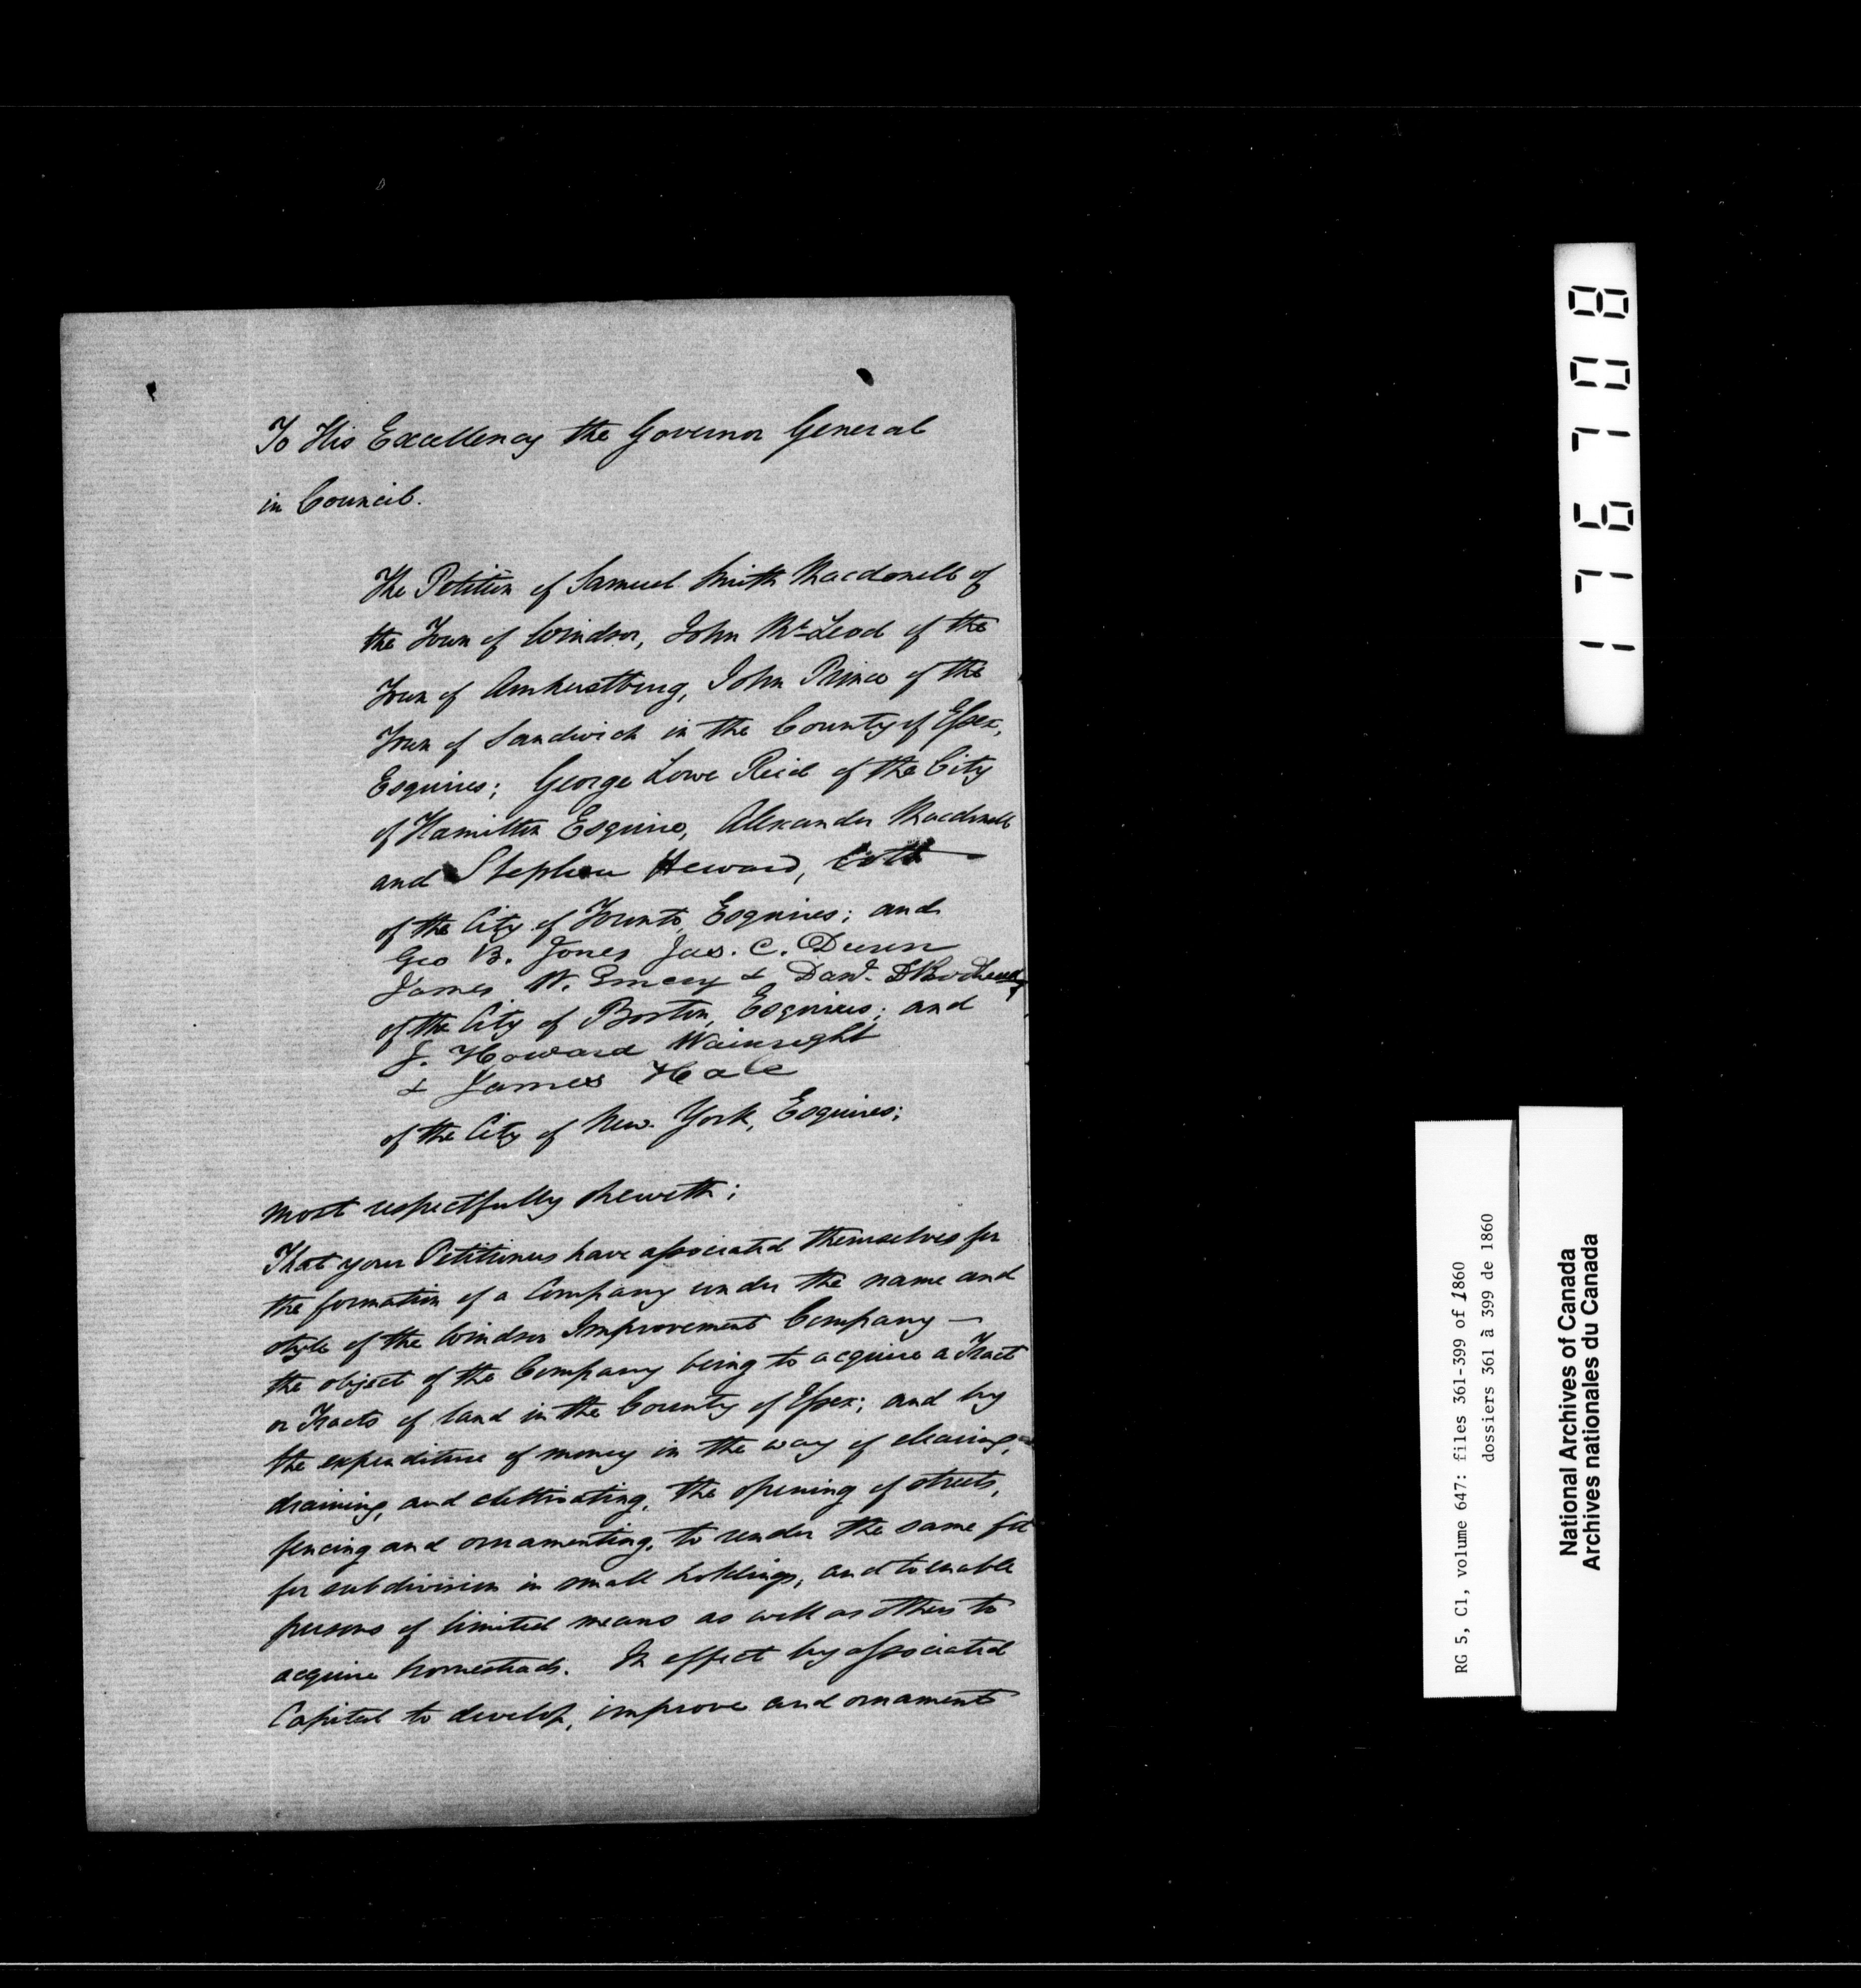 To His Excellency the Governor General
in Council.
The Petition of Samuel Smith Macdonell of
the Town of Windsor, John McLeod of the
Town of Amherstburg, John Prince of the
Town of Sandwich in the County of Essex,
Esquires; George Lowe Reid of the City
of Hamilton Esquire, Alexander Macdonell
and Stephen Heward, both
of the City of Toronto, Esquires; and
Geo B. Jones Jas. C. Dunn
James W. Emery &
of the City of Boston, Esquires; and
J. Howard Wainwright
& James Hale
of the City of New York, Esquires;
most respectfully sheweth;
That your Petitioners have associated themselves for
the formation of a Company under the name and
style of the Windsor Improvement Company —
the object of the Company being to acquire a Tract
or Tracts of land in the County of Essex; and by
the expenditure of money in the way of clearing,
draining, and cultivating, the opening of streets,
fencing and ornamenting, to render the same fit
for subdivision in small holdings, and to enable
persons of limited means as well as others to
acquire homesteads. In effect by associated
Capital to develop, improve and ornament
176708
RG 5, C1, volume 647: files 361-399 of 1860
dossiers 361 à 399 de 1860
National Archives of Canada
Archives nationales du Canada